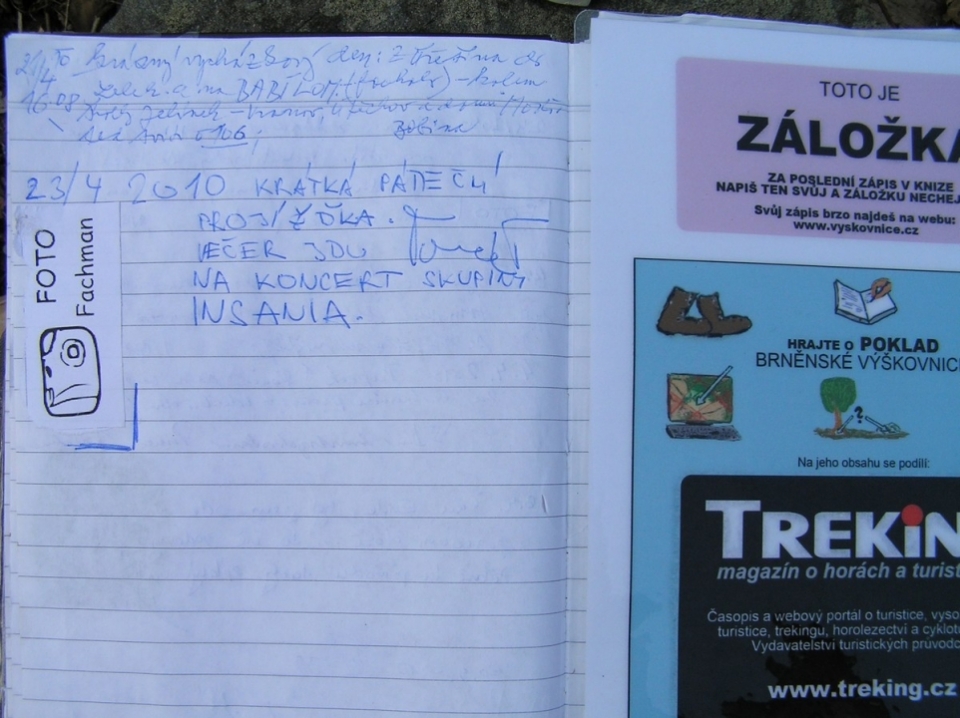 21/4 10 Krásný vycházkový den: z
16.08 na BABÍ LOM
106
23/4 2010 KRÁTKÁ PÁTEČNÍ
PROJÍŽĎKA.
VEČER JDU
NA KONCERT SKUPINY
INSANIA.
FOTO
Fachman
TOTO JE
ZÁLOŽKA
ZA POSLEDNÍ ZÁPIS V KNIZE
NAPIŠ TEN SVŮJ A ZÁLOŽKU NECHEJ
Svůj zápis brzo najdeš na webu:
www.vyskovnice.cz
HRAJTE O POKLAD
BRNĚNSKÉ VÝŠKOVNIC
?
Na jeho obsahu se podíli:
TREKiN
magazín o horách a turist
Časopis a webový portál o turistice, vyso
turistice, trekingu, horolezectví a cykloto
Vydavatelství turistických průvodc
www.treking.cz